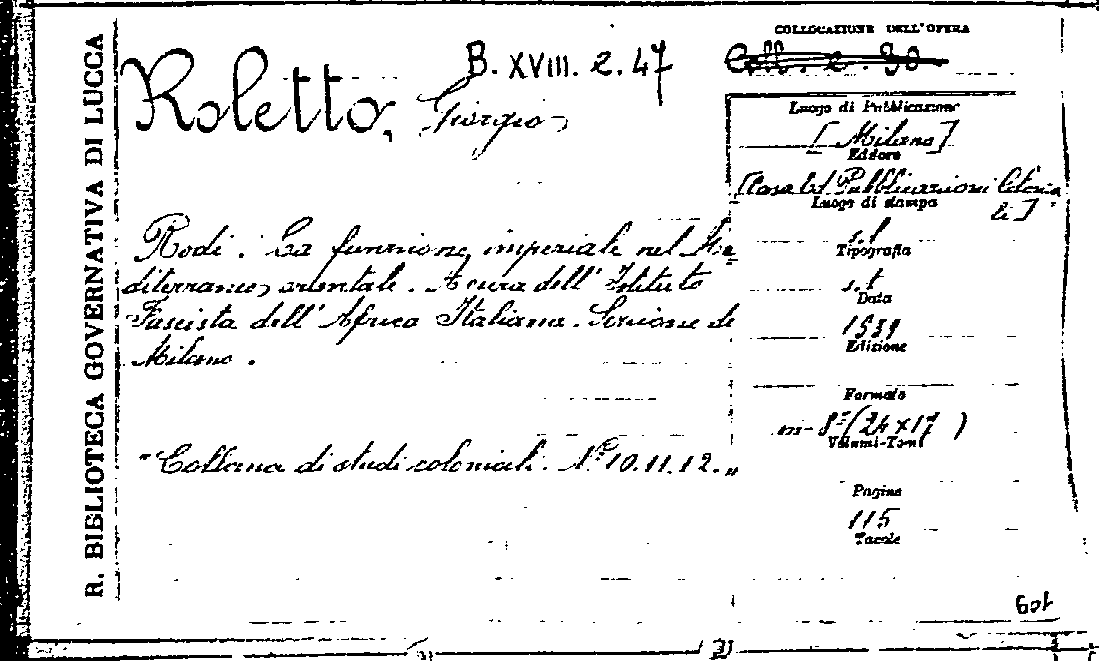 R. BIBLIOTECA GOVERNATIVA DI LUCCA
COLLOCAZIONE DELL'OPERA
B. XVIII. 2. 47
Coll. 2. 30
Roletto, Giorgio
Luogo di Pubblicazione
[Milano]
Editore
[Casa Ed. Pubblicazioni
Luogo di stampa
s.l
Tipografia
s.t
Data
1939
Edizione
Formato
in-8º (24x17)
Volumi-Tomi
Pagine
115
Tavole
Rodi. La funzione imperiale nel Me
diterraneo orientale. A cura dell'Istituto
Fascista dell'Africa Italiana. Sezione di
Milano.
"Collana di studi coloniali. Nº 10.11.12."